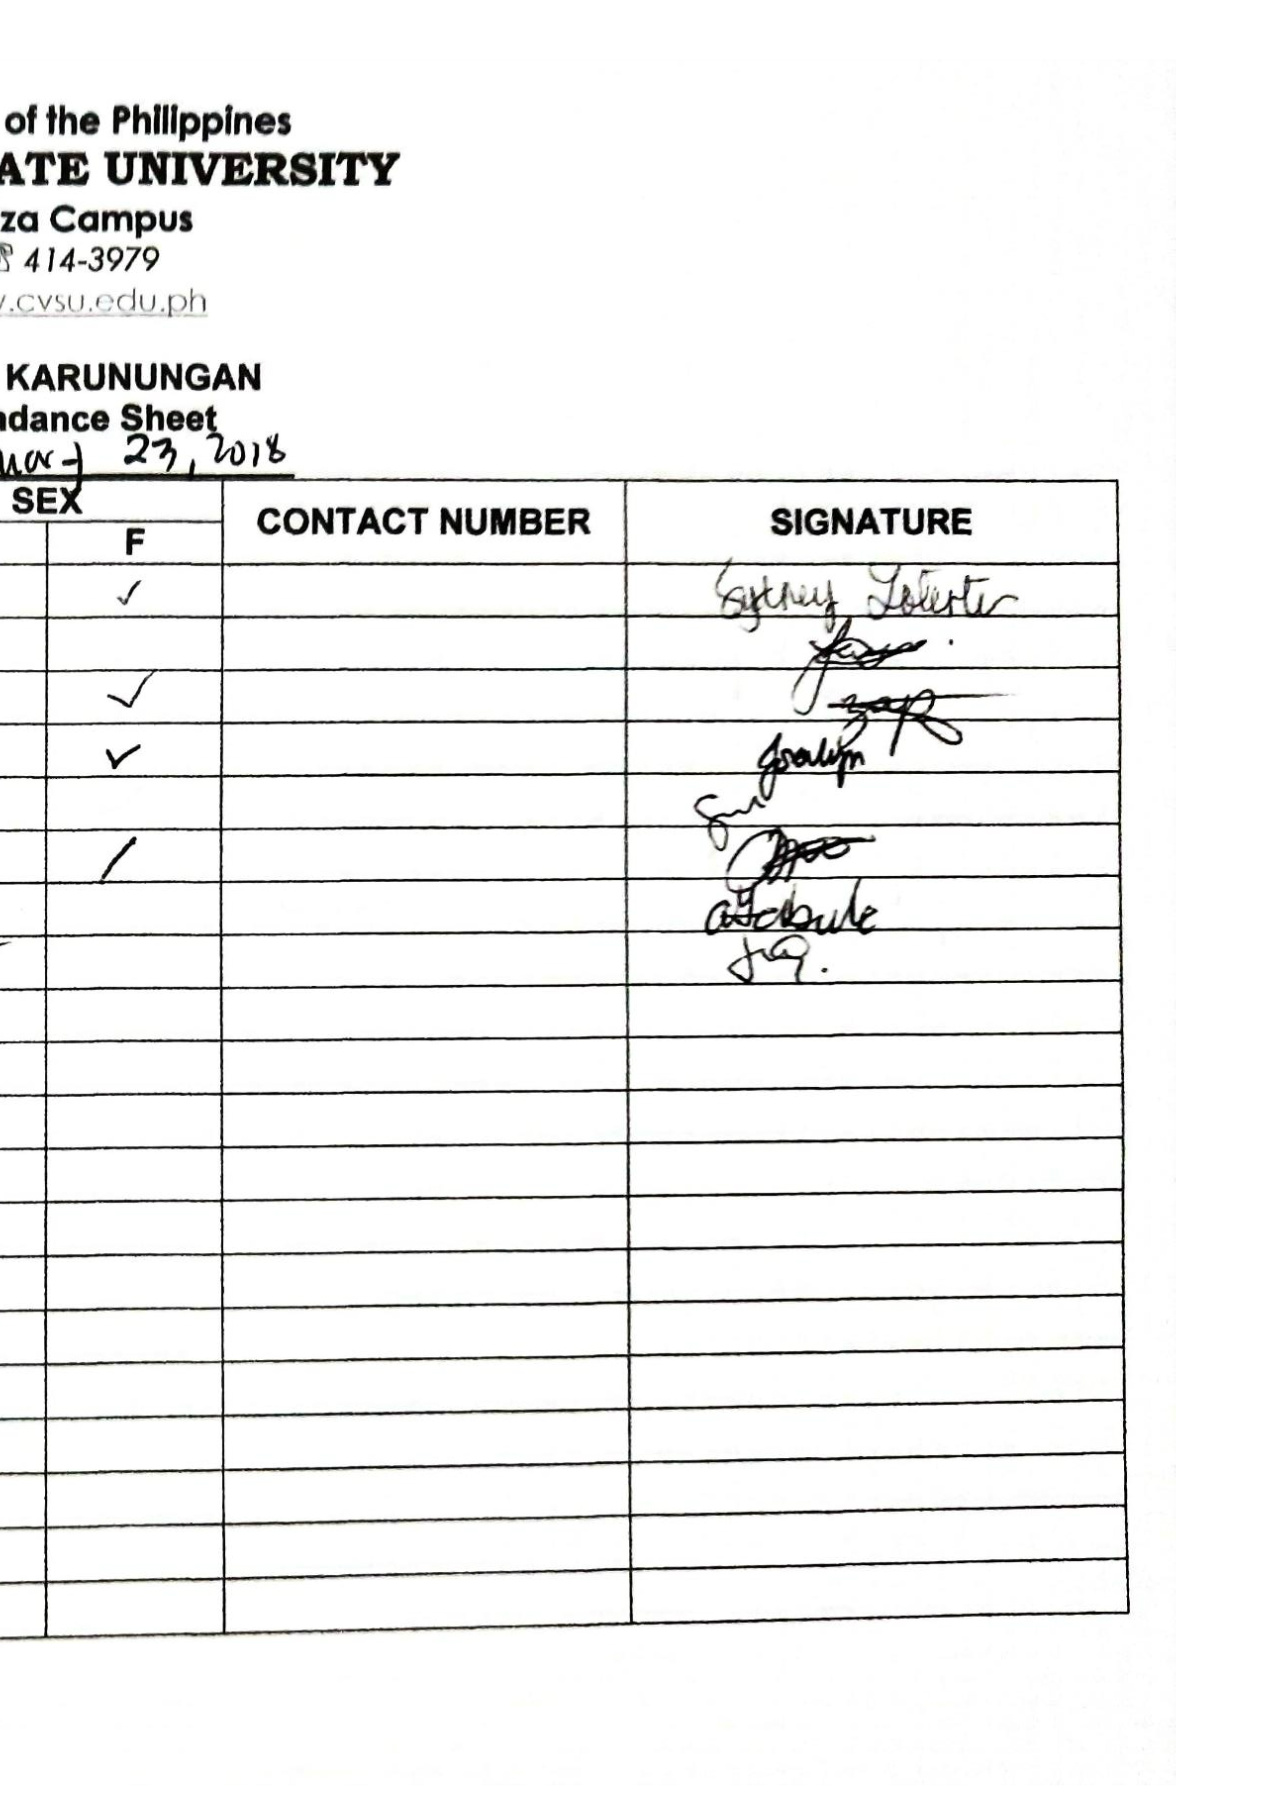 of the Philippines
ATE UNIVERSITY
za Campus
414-3979
.cvsu.edu.ph
KARUNUNGAN
ndance Sheet
23, 2018
SEX
F
CONTACT NUMBER
SIGNATURE
Sydney
Joralyn